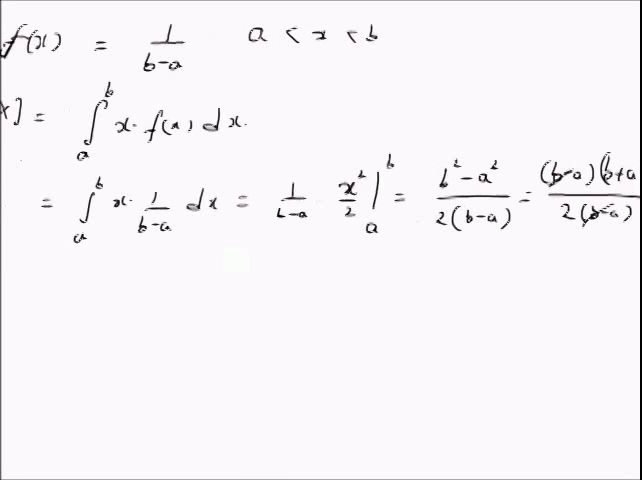 f(x) = 1/(b-a) a < x < b
x] = ∫_a^b x · f(x) dx.
= ∫_a^b x · 1/(b-a) dx = 1/(b-a) x²/2 |_a^b = (b²-a²)/(2(b-a)) = ((b-a)(b+a)/(2(b-a))